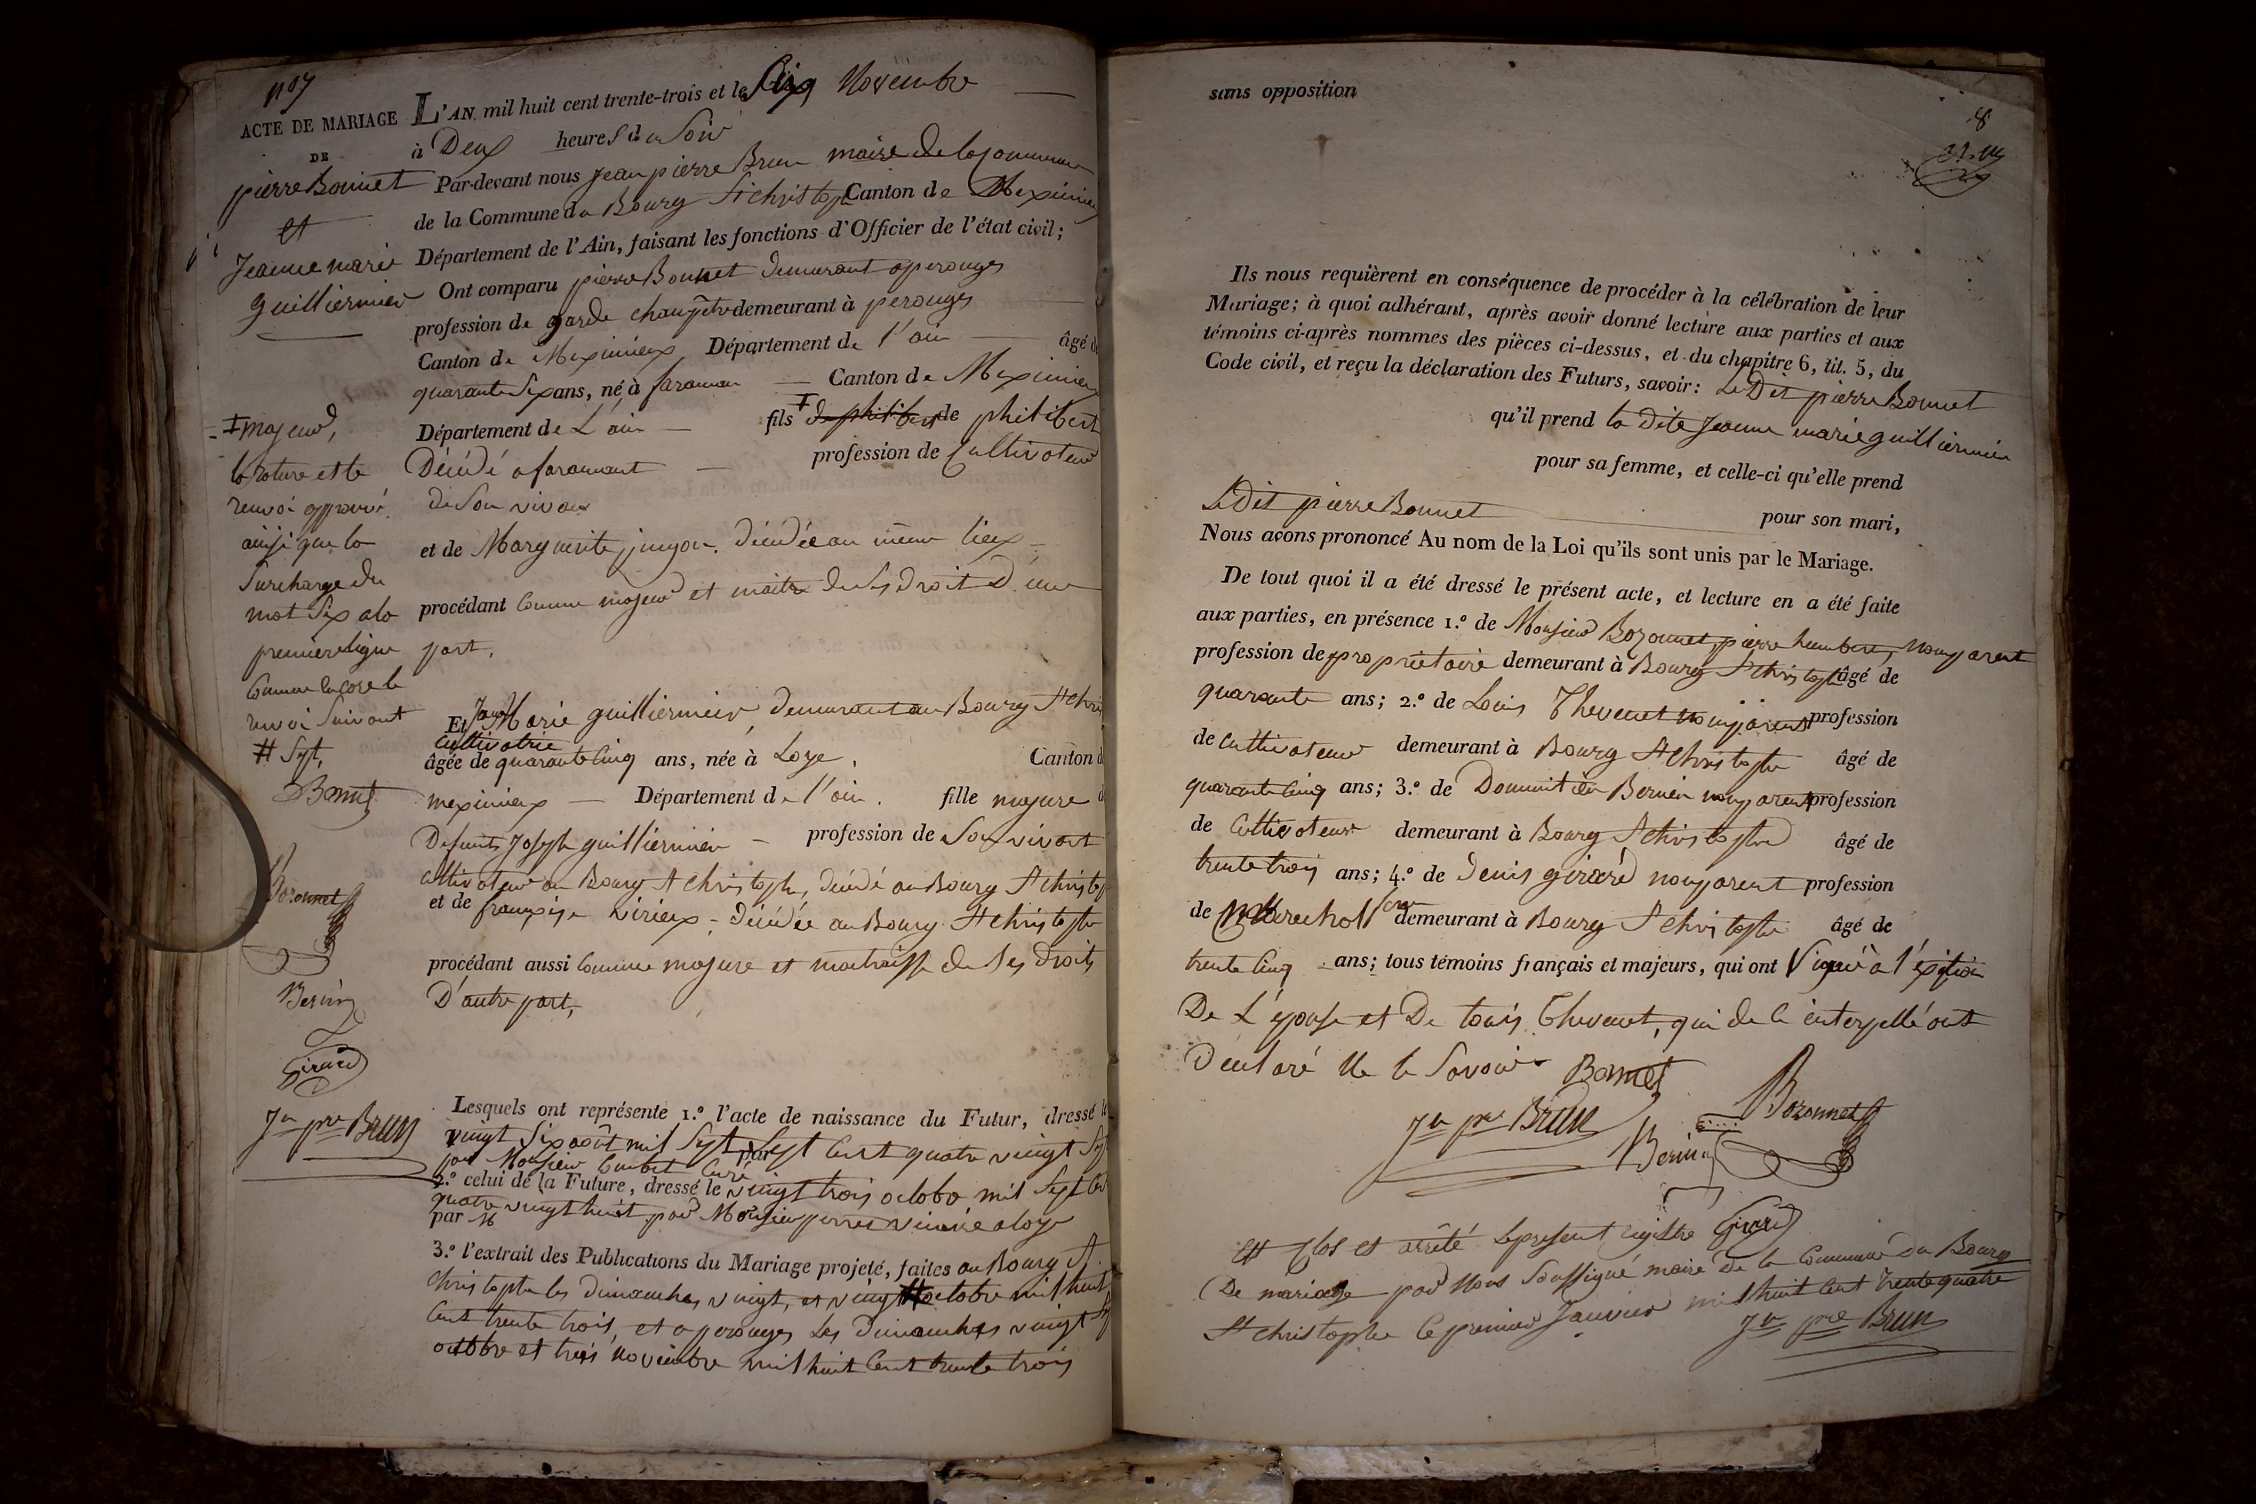 n° 7
ACTE DE MARIAGE
DE
pierre Bonnet
et
Jeanne marie
guilliermier
‡ majeur,
la rature et le
renvoi approuvé
ainsi que la
surcharge du
mot six a la
premiere ligne
comme encore le
renvoi suivant
# sept,
Bonnet
Bozonnet
Bernin
Girard
Jn pre Brun
L'AN mil huit cent trente-trois et le six Novembre
à Deux heures du soir
Par-devant nous jean pierre Brun maire de la commune
de la Commune du Bourg St christophe Canton de Meximieux
Département de l'Ain, faisant les fonctions d'Officier de l'état civil;
Ont comparu pierre Bonnet demeurant a perouges
profession de garde champêtre demeurant à perouges
Canton de Meximieux Département de l'ain âgé de
quarante six ans, né à faraman Canton de Meximieux
Département de L'ain fils ‡ de philibert de philibert
Décédé a faramant profession de Cultivateur
de son vivant
et de Marguerite jugon. décédée au même lieux
procédant comme majeur et maitre de ses droit D'une
part.
Et Jane Marie guilliermier, demeurant au Bourg St chris
cultivatrice
âgée de quarante cinq ans, née à Loye, Canton de
meximieux Département de l'ain. fille majure de
Defunts Joseph guilliermier profession de son vivant
cultivateur au Bourg St christophe, décédé au Bourg St christophe
et de françoise virieux décédée au Bourg St christophe
procédant aussi comme majure et maitraisse de ses droits
D'autre part,
Lesquels ont représenté 1.° l'acte de naissance du Futur, dressé le
vingt six août mil sept par sept cent quatre vingt sept
par Monsieur Curé
2.° celui de la Future, dressé le vingt trois octobre mil sept cent
quatre vingt huit par Monsieur a loye
par M
3.° l'extrait des Publications du Mariage projeté, faites au Bourg St
christophe les dimanches vingt, et vingt # octobre mil huit
cent trente trois, et a perouges Les Dimanches vingt sept
octobre et trois novembre mil huit cent trente trois
sans opposition
8
Ils nous requièrent en conséquence de procéder à la célébration de leur
Mariage; à quoi adhérant, après avoir donné lecture aux parties et aux
témoins ci-après nommes des pièces ci-dessus, et du chapitre 6, tit. 5, du
Code civil, et reçu la déclaration des Futurs, savoir: Le Dit pierre Bonnet
qu'il prend la Dite Jeanne marie guilliermier
pour sa femme, et celle-ci qu'elle prend
Le Dit pierre Bonnet pour son mari,
Nous avons prononcé Au nom de la Loi qu'ils sont unis par le Mariage.
De tout quoi il a été dressé le présent acte, et lecture en a été faite
aux parties, en présence 1.° de Monsieur Bozonnet pierre humbert, non parent
profession de propriétaire demeurant à Bourg St christophe âgé de
quarante ans; 2.° de Louis Thevenet non parent profession
de Cultivateur demeurant à Bourg St christophe âgé de
quarante cinq ans; 3.° de Dominitien Bernin non parent profession
de Cultivateur demeurant à Bourg St christophe âgé de
trente trois ans; 4.° de Denis girard non parent profession
de Marechal demeurant à Bourg St christophe âgé de
trente cinq ans; tous témoins français et majeurs, qui ont signé à l'éxeption
De L'épouse et De Louis Thevenet, qui de ce enterpellé ont
Déclaré Ne le savoir Bonnet
Jn pre Brun Bernin Bozonnet
Girard
Clos et arrêté le present registre
De mariage par Nous soussigné maire de la Commune du Bourg
St christophe le premier Janvier mil huit cent trente quatre
Jn pre Brun